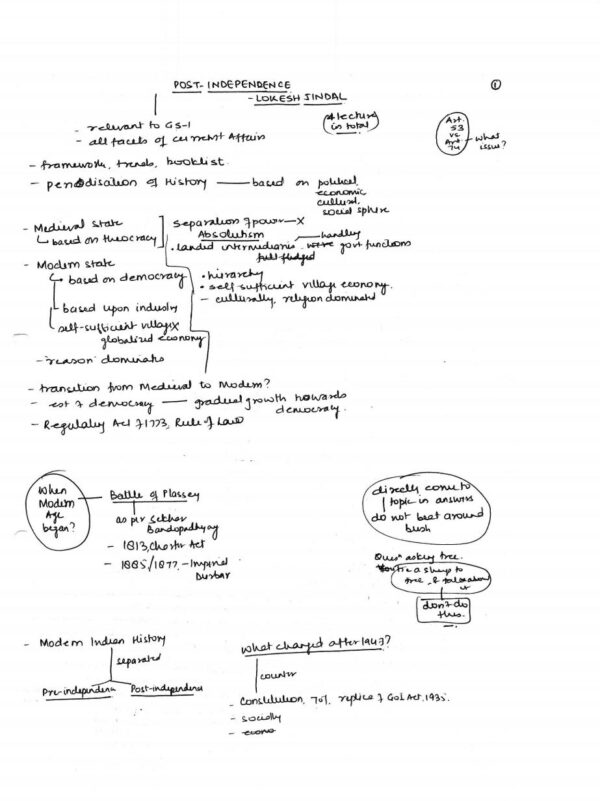 POST-INDEPENDENCE
①
- LOKESH JINDAL
- relevant to GS-1
- all facets of current Affairs
4 lecture
in total
Art.
53
vs
Art
74
- what
issue?
- framework, trends, booklist.
- periodisation of History — based on political
economic
cultural
social sphere
- Medieval State
based on theocracy
separation of power — X
Absolutism
• landed intermediaries handling
govt functions
full fledged
• hierarchy
• self sufficient village economy.
- culturally, religion dominated
- Modern state
based on democracy
based upon industry
self-sufficient village X
globalized economy
- 'reason' dominates
- transition from Medieval to Modern?
- est of democracy — gradual growth towards
democracy.
- Regulating Act of 1773, Rule of Law
When
Modern
Age
began?
Battle of Plassey
as per Sekhar
Bandopadhyay
- 1813, Charter Act
- 1885/1877 - Imperial
Durbar
directly come to
topic in answers
do not beat around
bush
Ques" asking tree.
You're a sheep to
tree, &
it
don't do
this.
- Modern Indian History
separated
Pre-independence Post-independence
What changed after 1947?
counter
- Constitution, 70% replica of GoI Act, 1935.
- socially
- econo